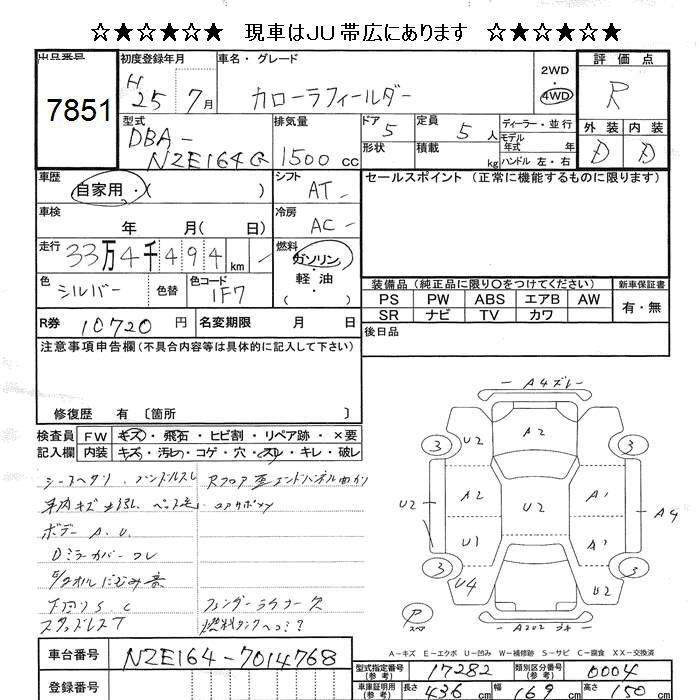 ☆★☆★☆★ 現車はJU帯広にあります ☆★☆★☆★
出品番号 7851
初度登録年月 H25 7月
車名・グレード カローラフィールダー
2WD 4WD
評価点 R
外装 D 内装 D
型式 DBA-NZE164G
排気量 1500cc
ドア 5 定員 5人
形状 積載 kg
ディーラー・並行
モデル年式 年
ハンドル 左・右
車歴 自家用・( )
シフト AT
セールスポイント (正常に機能するものに限ります)
車検 年 月( 日)
冷房 AC
走行 33万4千494km
燃料 ガソリン・軽油 ( )
色 シルバー 色替 色コード 1F7
装備品(純正品に限り○をつけてください) 新車保証書
PS PW ABS エアB AW 有・無
SR ナビ TV カワ
R券 10720円 名変期限 月 日
後日品
注意事項申告欄(不具合内容等は具体的に記入して下さい)
修復歴 有〔箇所 〕
検査員記入欄 FW キズ・飛石・ヒビ割・リペア跡・×要
内装 キズ・汚れ・コゲ・穴・スレ・キレ・破レ
シートヘタリ ハンドルスレ
ボデー A.U.
Dミラーカバー ワレ
下回り S C
スタッドレスT
A4
A2
U2
3
3
U2
A2
U2
A1
A4
U1
A1
3
3
U4
U2
R スペア
A2U2
A-キズ E-エクボ U-凹み W-補修跡 S-サビ C-腐食 XX-交換済
車台番号 NZE164-7014768
型式指定番号 17282 類別区分番号 0004
登録番号
車庫証明用(参考) 長さ 436cm (参考) 幅 169cm (参考) 高さ 150cm